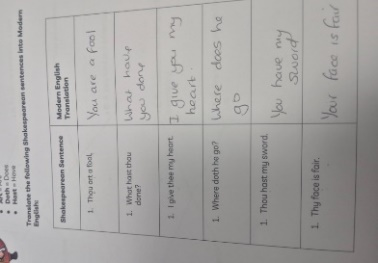 • Doth = Does
• Hast = Have
Translate the following Shakespearean sentences into Modern
English:
Shakespearean Sentence
Modern English
Translation
1. Thou art a fool.
You are a fool
1. What hast thou
done?
What have
you done
1. I give thee my heart.
I give you my
heart.
1. Where doth he go?
Where does he
go
1. Thou hast my sword.
You have my
sword
1. Thy face is fair.
Your face is fair